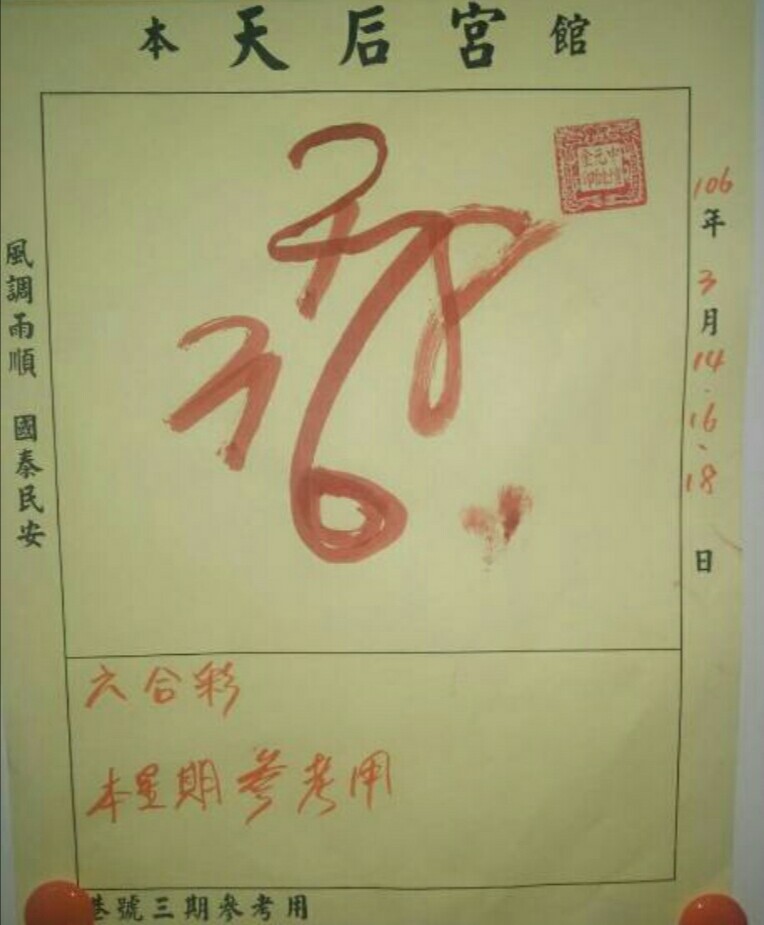 本天后宮館
106年3月14.16、18日
風調雨順 國泰民安
六合彩
本星期參考用
港號三期參考用